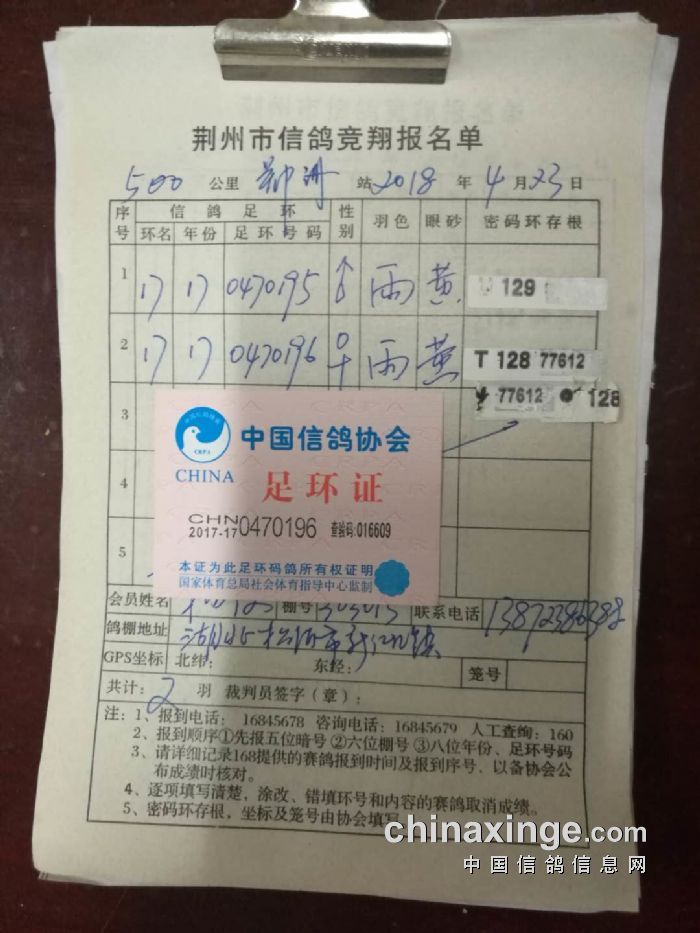 荆州市信鸽竞翔报名单
500 公里 郑州 站 2018 年 4 月 23 日
序号 信鸽足环 性别 羽色 眼砂 密码环存根
环名 年份 足环号码
1 17 17 0470195 ♂ 雨 黄 129
2 17 17 0470196 ♀ 雨 黄 T 128 77612
3 77612 128
中国信鸽协会
CRPA
CHINA
足环证
4
CHN
2017-17 0470196 查验码:016609
5
本证为此足环码鸽所有权证明
国家体育总局社会体育指导中心监制
会员姓名 棚号 联系电话 13872386388
鸽棚地址 湖北松滋市新江口镇
GPS坐标 北纬： 东经： 笼号
共计：2 羽 裁判员签字（章）：
注：1、报到电话：16845678 咨询电话：16845679 人工查询：160
2、报到顺序①先报五位暗号②六位棚号③八位年份、足环号码
3、请详细记录168提供的赛鸽报到时间及报到序号，以备协会公
布成绩时核对。
4、逐项填写清楚，涂改、错填环号和内容的赛鸽取消成绩。
5、密码环存根，坐标及笼号由协会填写
chinaxinge.com
中国信鸽信息网